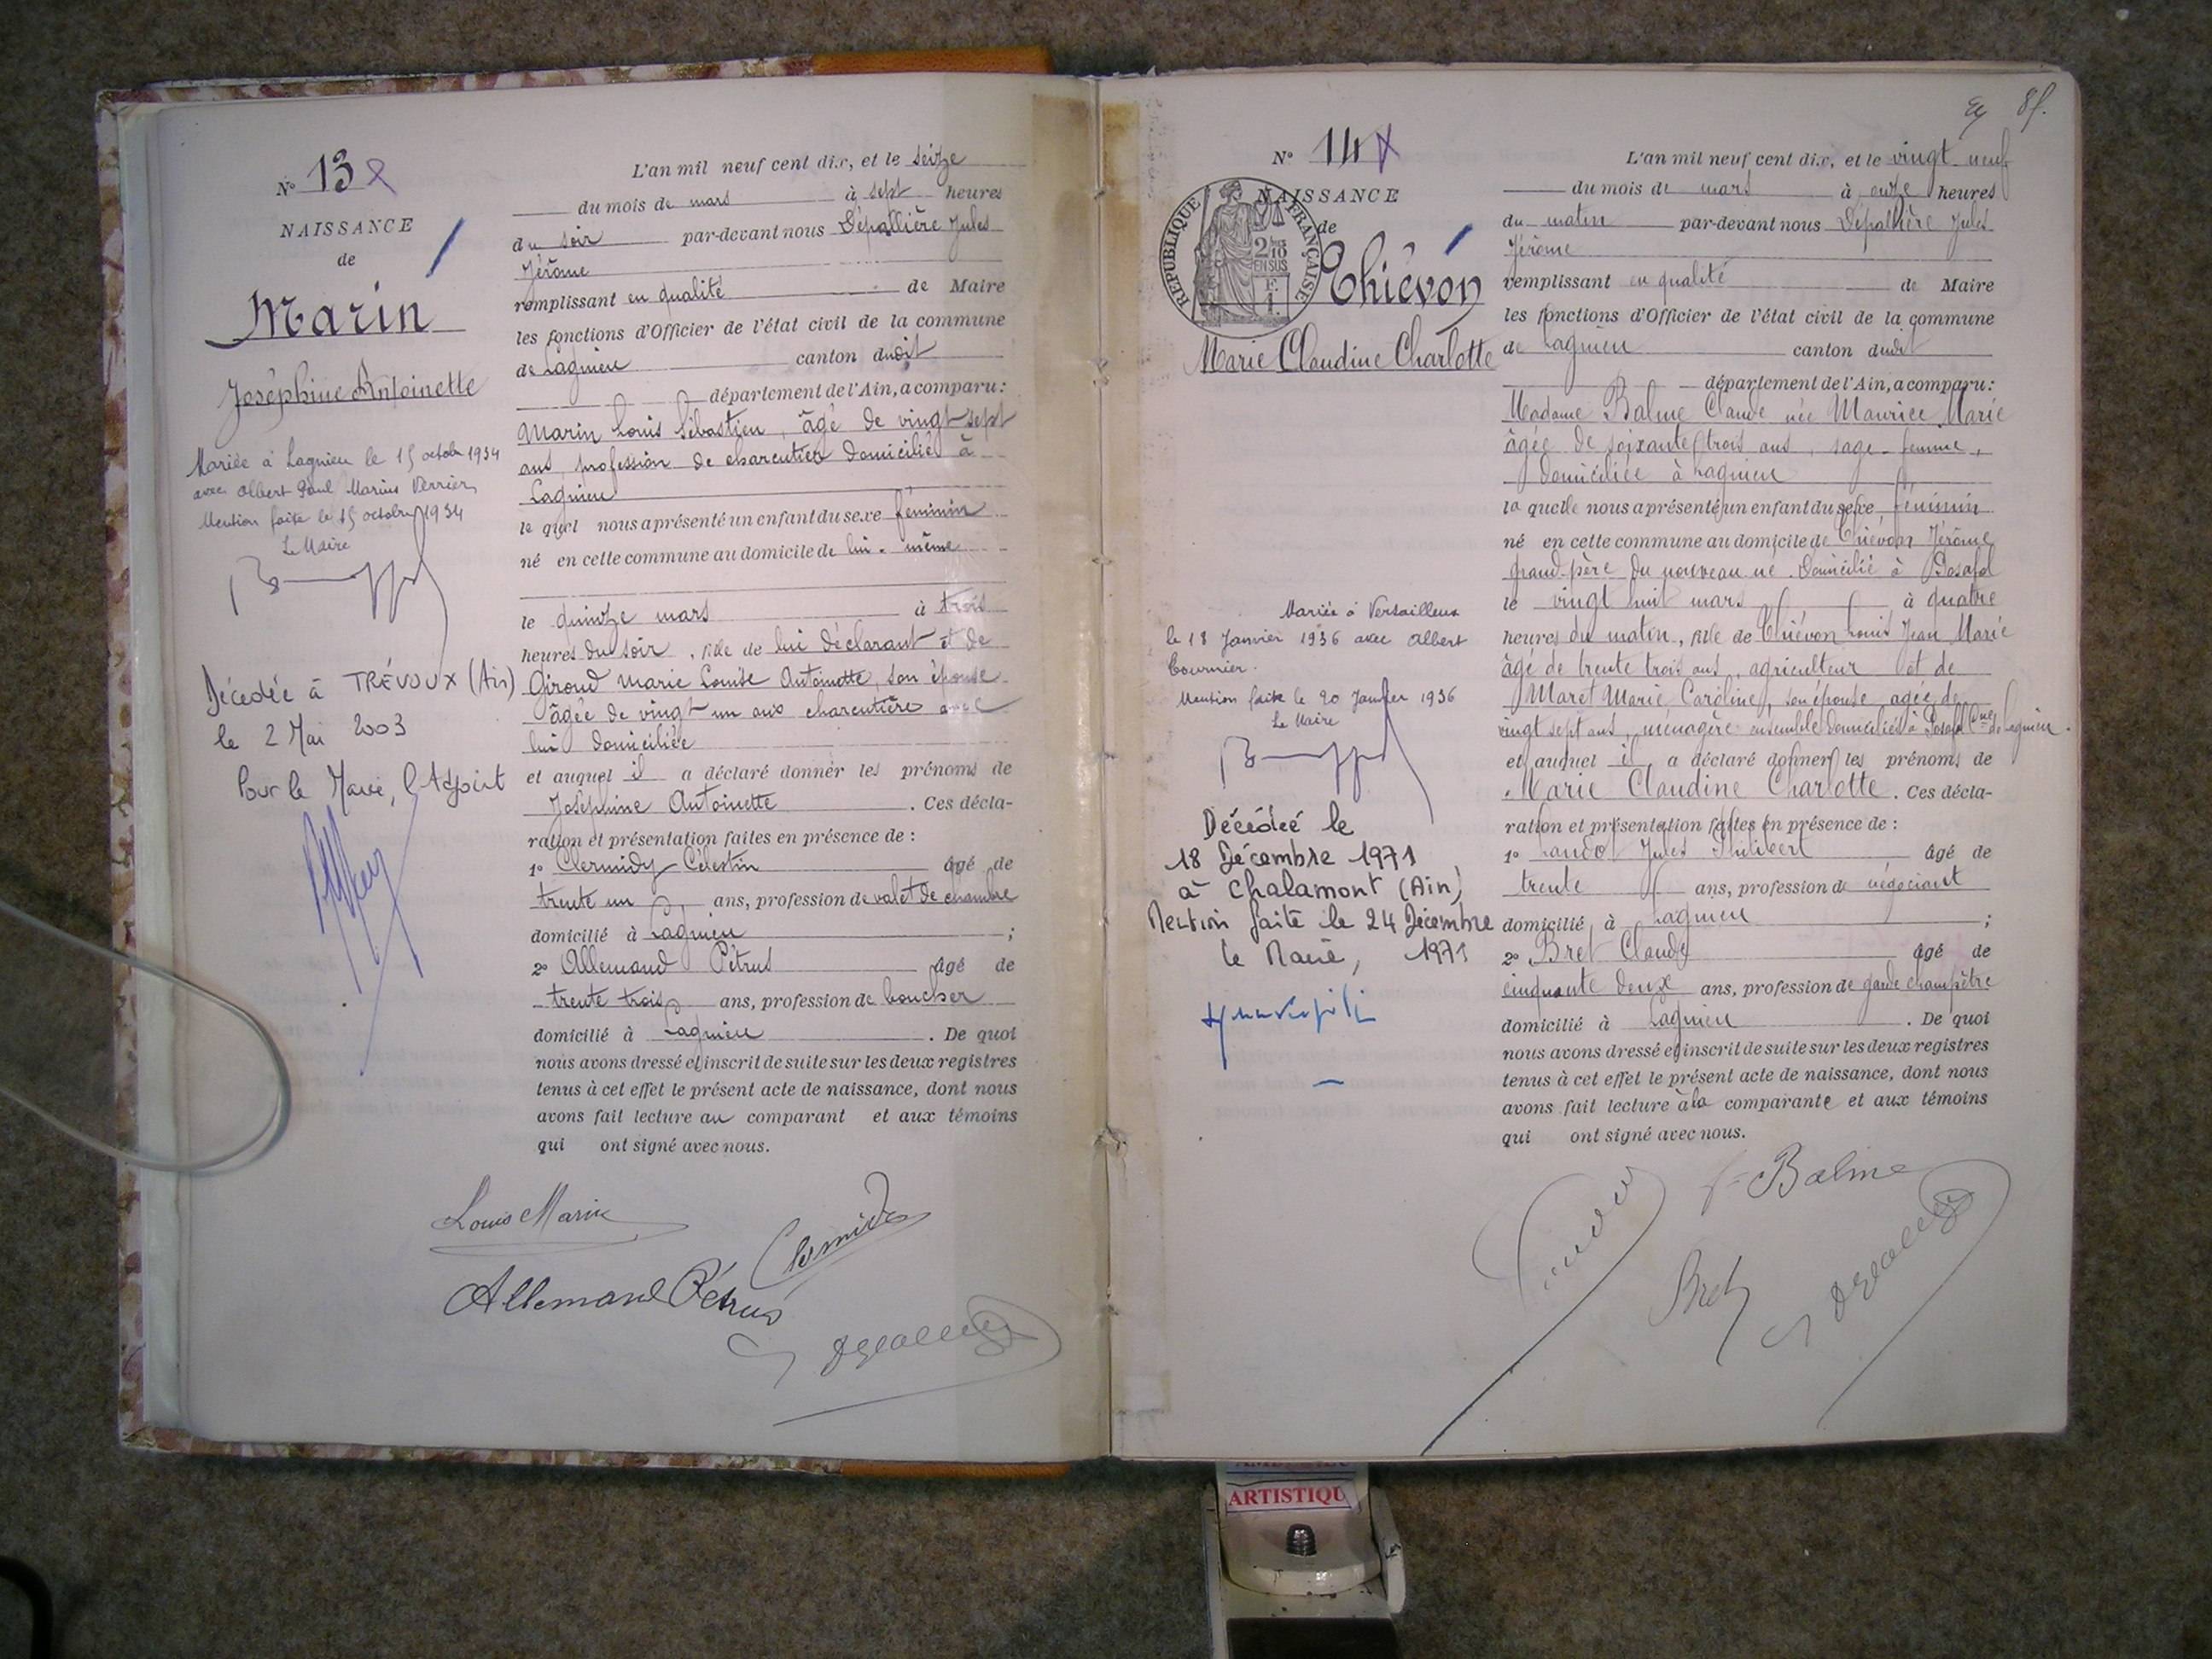 N° 13
NAISSANCE
de
Marin
Joséphine Antoinette
Mariée à Lagnieu le 15 octobre 1934
avec Albert Paul Marius Verrier
Mention faite le 15 octobre 1934
Le Maire
Décédée à TRÉVOUX (Ain)
le 2 Mai 2003
Pour le Maire, l'Adjoint
L'an mil neuf cent dix, et le seize
du mois de mars à sept heures
du soir par-devant nous Dépallière Jules
Jérôme
remplissant en qualité de Maire
les fonctions d'Officier de l'état civil de la commune
de Lagnieu canton dudit
département de l'Ain, a comparu:
Marin Louis Sébastien, âgé de vingt-sept
ans, profession de charcutier domicilié à
Lagnieu
le quel nous a présenté un enfant du sexe féminin
né en cette commune au domicile de lui-même
le quinze mars à trois
heures du soir, fille de lui déclarant et de
Giroud Marie Louise Antoinette, son épouse
âgée de vingt-un ans charcutière avec
lui domiciliée
et auquel il a déclaré donner les prénoms de
Joséphine Antoinette. Ces décla-
ration et présentation faites en présence de:
1° Clermidy Célestin âgé de
trente un ans, profession de valet de chambre
domicilié à Lagnieu;
2° Allemand Pétrus âgé de
trente trois ans, profession de boucher
domicilié à Lagnieu. De quoi
nous avons dressé et inscrit de suite sur les deux registres
tenus à cet effet le présent acte de naissance, dont nous
avons fait lecture au comparant et aux témoins
qui ont signé avec nous.
Louis Marin
Clermidy
Allemand Pétrus
8f.
N° 14
NAISSANCE
de
RÉPUBLIQUE FRANÇAISE
2/10
EN SUS
F.
1.
Thiévon
Marie Claudine Charlotte
Mariée à Versailleux
le 18 Janvier 1936 avec Albert
Cournier.
Mention faite le 20 Janvier 1936
Le Maire
Décédée le
18 Décembre 1971
à Chalamont (Ain)
Mention faite le 24 Décembre
le Maire, 1971
L'an mil neuf cent dix, et le vingt neuf
du mois de mars à onze heures
du matin par-devant nous Dépallière Jules
Jérôme
remplissant en qualité de Maire
les fonctions d'Officier de l'état civil de la commune
de Lagnieu canton dudit
département de l'Ain, a comparu:
Madame Balme Claude née Maurice Marie
âgée de soixante trois ans, sage-femme,
domiciliée à Lagnieu
la quelle nous a présenté un enfant du sexe féminin
né en cette commune au domicile de Thiévon Jérôme
grand-père du nouveau né domicilié à Posafol
le vingt huit mars à quatre
heures du matin, fille de Thiévon Louis Jean Marie
âgé de trente trois ans, agriculteur et de
Maret Marie Caroline, son épouse agée de
vingt sept ans, ménagère ensemble domiciliés à Posafol Cne de Lagnieu.
et auquel il a déclaré donner les prénoms de
Marie Claudine Charlotte. Ces décla-
ration et présentation faites en présence de:
1° Jules Philibert âgé de
trente ans, profession de négociant
domicilié à Lagnieu;
2° Bret Claude âgé de
cinquante deux ans, profession de garde champêtre
domicilié à Lagnieu. De quoi
nous avons dressé et inscrit de suite sur les deux registres
tenus à cet effet le présent acte de naissance, dont nous
avons fait lecture à la comparante et aux témoins
qui ont signé avec nous.
Balme
Bret
ARTISTIQU